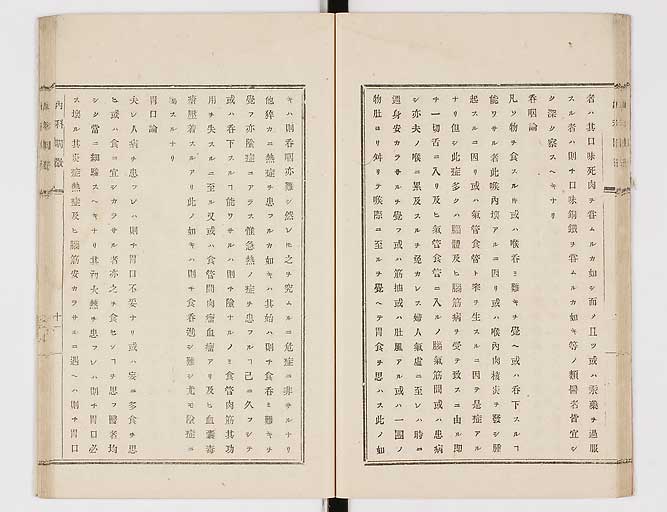 者ハ其口味死肉ヲ甞ムルカ如シ而ノ且ツ或ハ汞藥ヲ過服
スル者ハ則チ口味銅鐵ヲ甞ムルカ如キ等ノ類醫者當宜シ
ク深ク察スヘキナリ
呑咽論
凡ソ物ヲ食スルキ或ハ喉呑ミ難キヲ覺ヘ或ハ呑下スルヿ
能ワサル者此喉內壞アルニ因リ或ハ喉內肉核炎ヲ發シ腫
起スルニ因リ或ハ氣管食管ト窄ヲ生スルニ因テ是症アル
ナリ但シ此症多クハ腦髓及ヒ腦筋病ヲ受テ致スニ由ル即
チ一切舌ニ入リ及ヒ氣管食管ニ入ルノ腦氣筋間或ハ患病
シ亦夫ノ喉ニ累及スルヲ免カレス婦人氣處ニ至レハ時ニ
週身安カラサルヲ覺フ或ハ筋抽或ハ肚風アル或ハ一團ノ
物肚ヨリ舛リテ喉際ニ至ルヲ覺ヘテ胃食ヲ思ハス此ノ如
キハ則呑咽亦難シ然レモ之ヲ究ムルニ危症ニ非サルナリ
他猝カニ熱症ヲ患フルカ如キハ其始ハ則チ食呑ミ難キヲ
覺フ亦陰症ニアラス惟急熱ノ症ヲ患フルヿ已ニ久フシテ
或ハ呑下スルヿ能ワサルハ則チ陰ナルノミ食管肉筋其功
用ヲ失スルニ至ル又或ハ食管間肉瘤血瘤アリ及ヒ血囊毒
瘡壓着スルアリ此ノ如キハ則チ食呑過シ難シ尤モ陰症ニ
屬スルナリ
胃口論
夫レ人病ヲ患フレハ則チ胃口不妥ナリ或ハ妄ニ多食ヲ思
ヒ或ハ食ニ宜シカラサル者亦之ヲ食セシヿヲ思フ醫者均
シク當ニ細驗スヘキナリ其初火熱ヲ患フレハ則チ胃口必
ス壞ル其炎症熱症及ヒ腦筋安カラサルニ遇ヘハ則チ胃口
內科闡微
十一